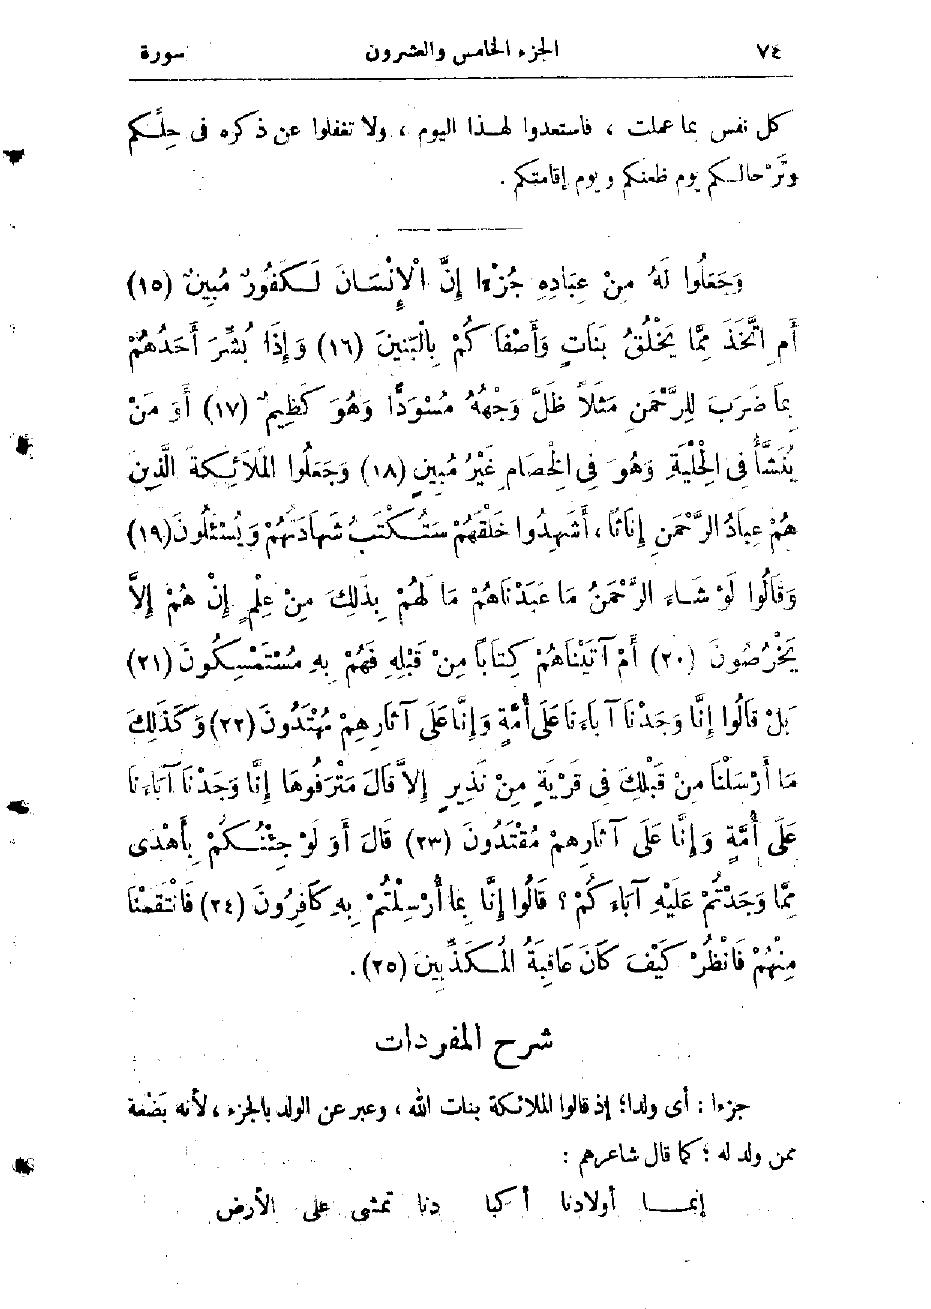 ٧٤ الجزء الخامس والعشرون سورة
كل نفس بما عملت ، فاستعدوا لهذا اليوم ، ولا تغفلوا عن ذكره فى حِلِّكم
وتَرْحالكم يوم ظعنكم ويوم إقامتكم .
وَجَعَلُوا لَهُ مِنْ عِبَادِهِ جُزْءًا إِنَّ الْإِنْسَانَ لَكَفُورٌ مُبِينٌ (١٥)
أَمِ اتَّخَذَ مِمَّا يَخْلُقُ بَنَاتٍ وَأَصْفَاكُمْ بِالْبَنِينَ (١٦) وَإِذَا بُشِّرَ أَحَدُهُمْ
بِمَا ضَرَبَ لِلرَّحْمَنِ مَثَلاً ظَلَّ وَجْهُهُ مُسْوَدًّا وَهُوَ كَظِيمٌ (١٧) أَوَ مَنْ
يُنَشَّأُ فِى الْحِلْيَةِ وَهُوَ فِى الْخِصَامِ غَيْرُ مُبِينٍ (١٨) وَجَعَلُوا الْمَلَائِكَةَ الَّذِينَ
هُمْ عِبَادُ الرَّحْمَنِ إِنَاثًا ، أَشَهِدُوا خَلْقَهُمْ سَتُكْتَبُ شَهَادَتُهُمْ وَيُسْئَلُونَ (١٩)
وَقَالُوا لَوْ شَاءَ الرَّحْمَنُ مَا عَبَدْنَاهُمْ مَا لَهُمْ بِذَلِكَ مِنْ عِلْمٍ إِنْ هُمْ إِلاَّ
يَخْرُصُونَ (٢٠) أَمْ آتَيْنَاهُمْ كِتَابًا مِنْ قَبْلِهِ فَهُمْ بِهِ مُسْتَمْسِكُونَ (٢١)
بَلْ قَالُوا إِنَّا وَجَدْنَا آبَاءَنَا عَلَى أُمَّةٍ وَإِنَّا عَلَى آثَارِهِمْ مُهْتَدُونَ (٢٢) وَكَذَلِكَ
مَا أَرْسَلْنَا مِنْ قَبْلِكَ فِى قَرْيَةٍ مِنْ نَذِيرٍ إِلاَّ قَالَ مُتْرَفُوهَا إِنَّا وَجَدْنَا آبَاءَنَا
عَلَى أُمَّةٍ وَإِنَّا عَلَى آثَارِهِمْ مُقْتَدُونَ (٢٣) قَالَ أَوَ لَوْ جِئْتُكُمْ بِأَهْدَى
مِمَّا وَجَدْتُمْ عَلَيْهِ آبَاءَكُمْ ؟ قَالُوا إِنَّا بِمَا أُرْسِلْتُمْ بِهِ كَافِرُونَ (٢٤) فَانْتَقَمْنَا
مِنْهُمْ فَانْظُرْ كَيْفَ كَانَ عَاقِبَةُ الْمُكَذِّبِينَ (٢٥) .
شرح المفردات
جزءا : أى ولدا؛ إذ قالوا الملائكة بنات الله ، وعبر عن الولد بالجزء ، لأنه بَضْعة
ممن ولد له ؛ كما قال شاعرهم :
إنمـا أولادنا أكبا دنا تمشى على الأرض